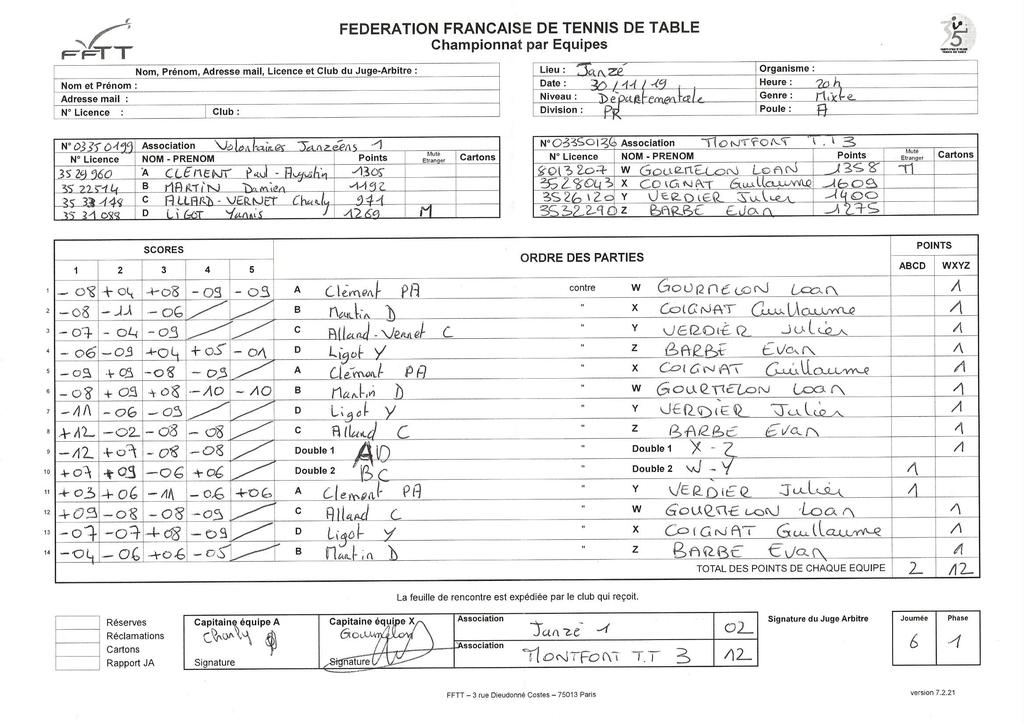 FFTT
FEDERATION FRANCAISE DE TENNIS DE TABLE
Championnat par Equipes
Nom, Prénom, Adresse mail, Licence et Club du Juge-Arbitre :
Nom et Prénom :
Adresse mail :
N° Licence : Club :
Lieu : Janzé Organisme :
Date : 30/11/19 Heure : 20h
Niveau : Départementale Genre : Mixte
Division : PR Poule : A
N° 03350199 Association Volontaires Janzéens 1
N° Licence NOM - PRENOM Points Muté Etranger Cartons
3529960 A CLÉMENT Paul - Augustin 1305
35 22514 B MARTIN Damien 1192
35 33148 C ALLARD - VERNET Charly 971
35 31088 D LIGOT Yannis 1269 M
N° 03350136 Association MONTFORT T.T 3
N° Licence NOM - PRENOM Points Muté Etranger Cartons
8013207 W GOURMELON LOAN 1358 M
3528043 X COIGNAT Guillaume 1609
3526120 Y VERDIER Julien 1400
3532290 Z BARBÉ Evan 1275
SCORES ORDRE DES PARTIES POINTS
1 2 3 4 5 ABCD WXYZ
1 - 08 + 04 + 08 - 09 - 09 A Clément PA contre W GOURMELON Loan 1
2 - 08 - 11 - 06 B Martin D " X COIGNAT Guillaume 1
3 - 07 - 04 - 09 C Allard - Vernet C " Y VERDIER Julien 1
4 - 06 - 09 + 04 + 05 - 01 D Ligot Y " Z BARBÉ Evan 1
5 - 09 + 09 - 08 - 09 A Clément PA " X COIGNAT Guillaume 1
6 - 08 + 09 + 08 - 10 - 10 B Martin D " W GOURMELON Loan 1
7 - 11 - 06 - 09 D Ligot Y " Y VERDIER Julien 1
8 + 12 - 02 - 08 - 08 C Allard C " Z BARBÉ Evan 1
9 - 12 + 07 - 08 - 08 Double 1 AD " Double 1 X - Z 1
10 + 07 + 09 - 06 + 06 Double 2 BC " Double 2 W - Y 1
11 + 03 + 06 - 11 - 06 + 06 A Clément PA " Y VERDIER Julien 1
12 + 09 - 08 - 08 - 09 C Allard C " W GOURMELON Loan 1
13 - 07 - 07 + 08 - 09 D Ligot Y " X COIGNAT Guillaume 1
14 - 04 - 06 + 06 - 05 B Martin D " Z BARBÉ Evan 1
TOTAL DES POINTS DE CHAQUE EQUIPE 2 12
La feuille de rencontre est expédiée par le club qui reçoit.
Réserves
Réclamations
Cartons
Rapport JA
Capitaine équipe A
Charly
Signature
Capitaine équipe X
Gourmelon
Signature
Association Janzé 1 02
Association MONTFORT T.T 3 12
Signature du Juge Arbitre
Journée Phase
6 1
FFTT – 3 rue Dieudonné Costes – 75013 Paris
version 7.2.21